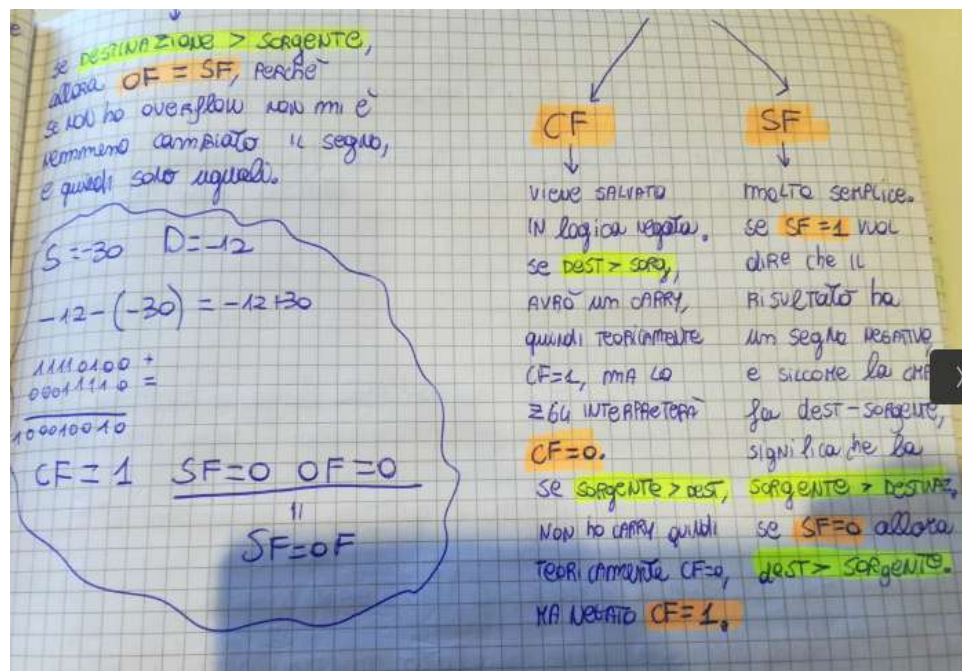 se DESTINAZIONE > SORGENTE,
allora OF = SF, PERCHÉ
se non ho overflow non mi è
nemmeno cambiato il segno,
e quindi sono uguali.
S=-30 D=-12
-12-(-30) = -12+30
11110100 +
00011110 =
100010010
CF = 1 SF=0 OF=0
"
SF=OF
CF
↓
VIENE SALVATO
IN logica negata.
se DEST > SORG,
AVRÒ UN CARRY,
quindi TEORICAMENTE
CF=1, MA LO
Z64 INTERPRETERÀ
CF=0.
SE SORGENTE > DEST,
NON ho CARRY quindi
TEORICAMENTE CF=0,
MA NEGATO CF=1.
SF
↓
MOLTO SEMPLICE.
se SF=1 VUOL
DIRE che IL
RISULTATO ha
un segno NEGATIVO,
e siccome la CMP
fa dest-SORGENTE,
significa che la
SORGENTE > DESTINAZ,
se SF=0 allora
dEST > SORGENTE.